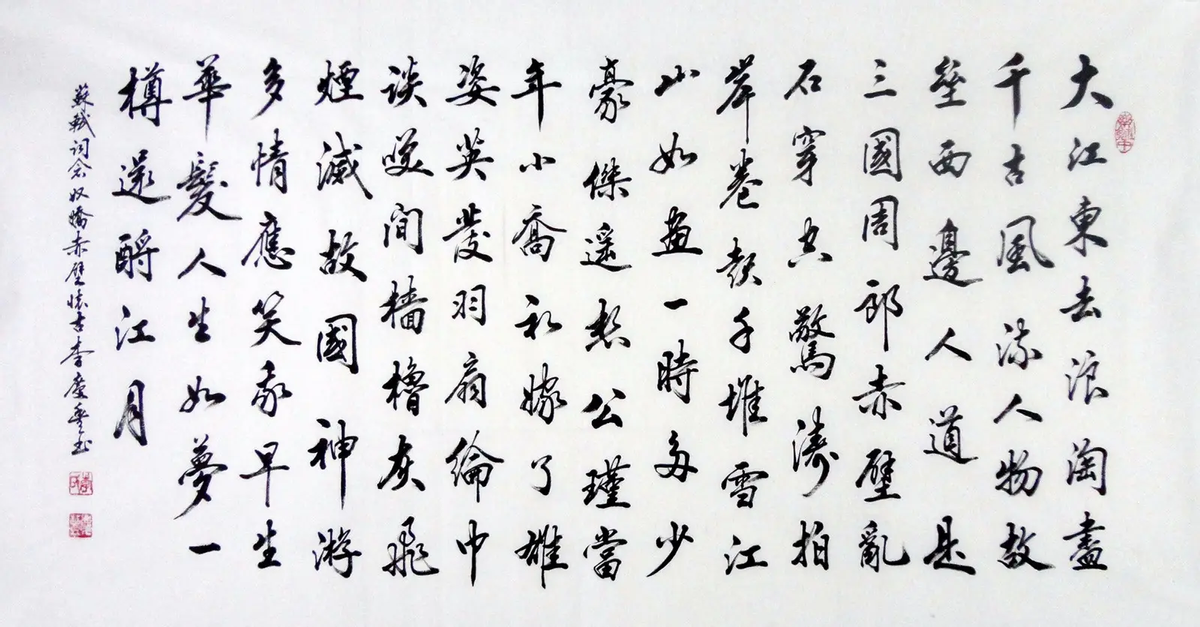 大江東去浪淘盡
千古風流人物故
壘西邊人道是
三國周郎赤壁亂
石穿空驚濤拍
岸卷起千堆雪江
山如畫一時多少
豪傑遥想公瑾當
年小喬初嫁了雄
姿英發羽扇綸巾
談笑間檣櫓灰飛
煙滅故國神游
多情應笑我早生
華髮人生如夢一
樽還酹江月
蘇軾词念奴嬌赤壁懷古李慶